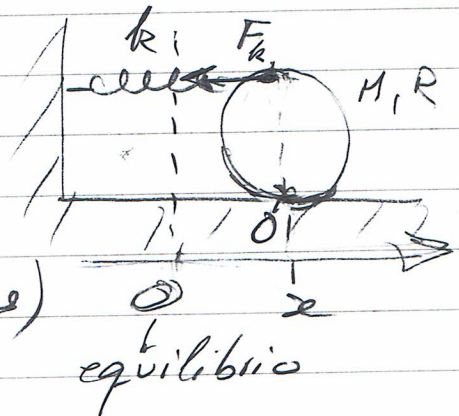 k F_k
M, R
O'
O x
equilibrio